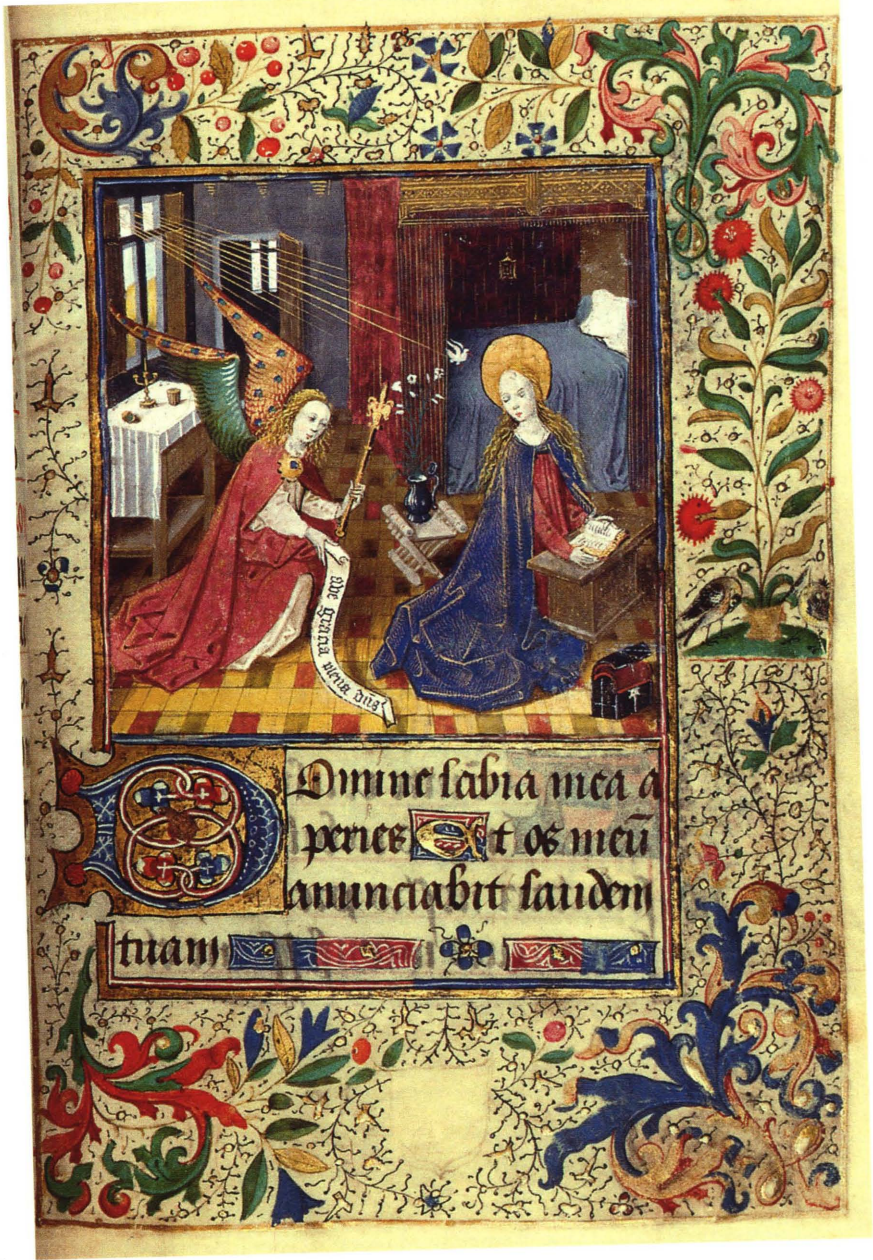 Ave gracia plena dns
DOmine labia mea a
peries Et os meū
anunciabit laudem
tuam